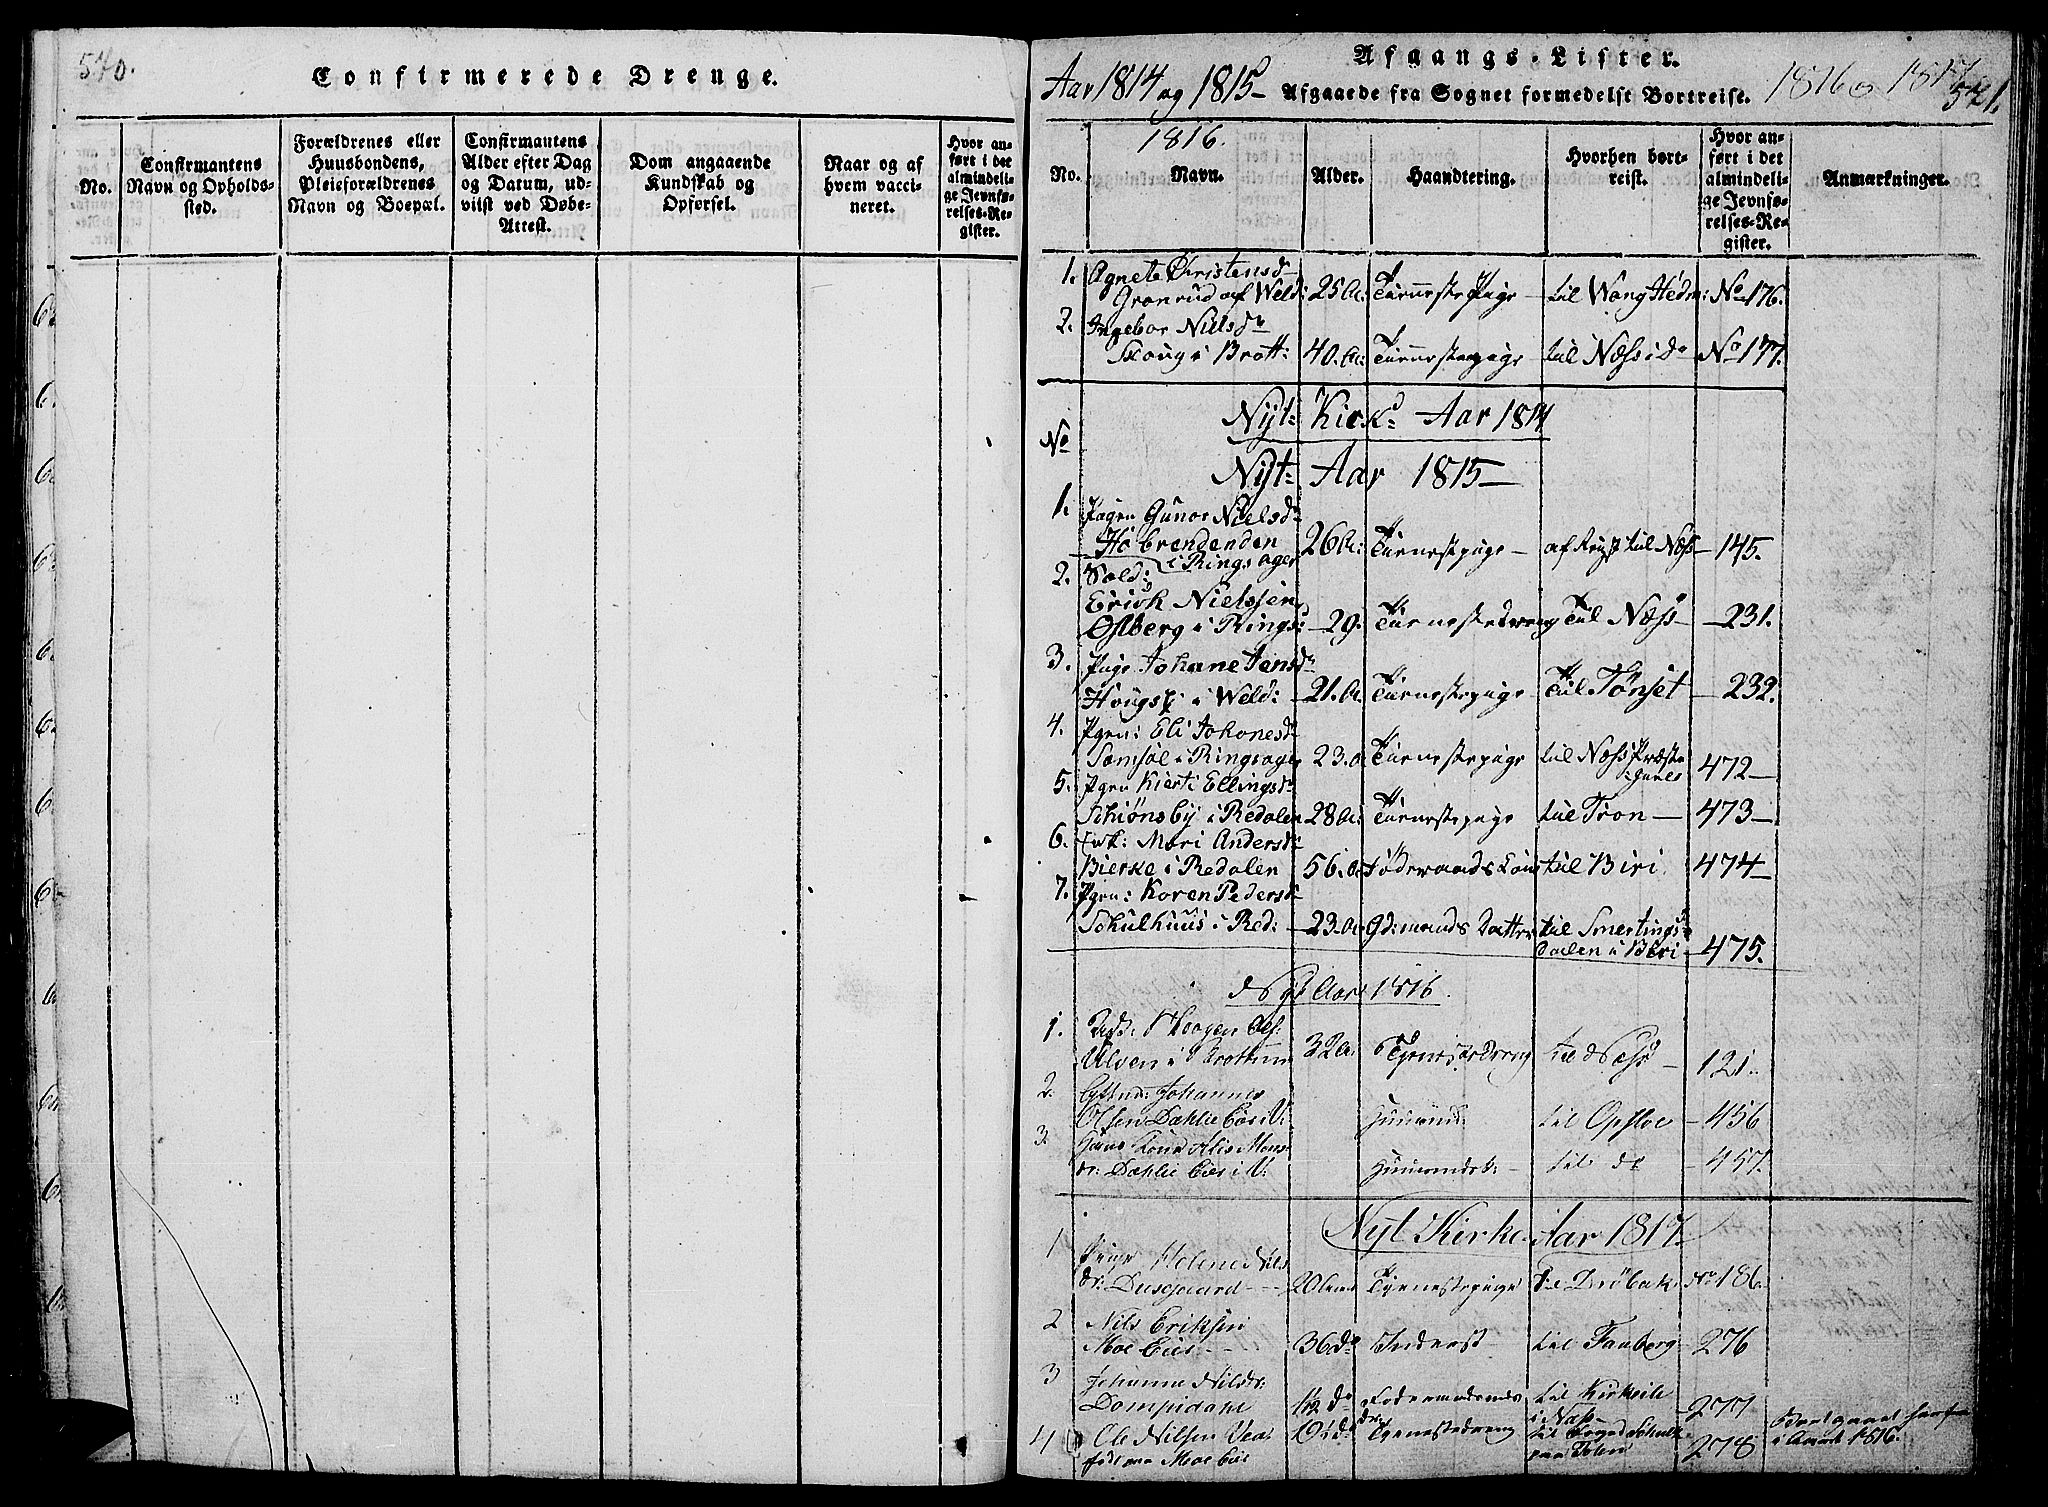 540.
Confirmerede Drenge.
No.
Confirmantens
Navn og Opholds-
sted.
Forældrenes eller
Huusbondens,
Pleieforældrenes
Navn og Boepæl.
Confirmantens
Alder efter Dag
og Datum, ud-
viist ved Døbe-
Attest.
Dom angaaende
Kundskab og
Opførsel.
Naar og af
hvem vacci-
neret.
Hvor an-
ført i det
almindeli-
ge Jevnfø-
relses-Re-
gister.
Afgangs-Lister.
Aar 1814 og 1815 Afgaaede fra Sognet formedelst Bortreise. 1816 o 1817 541.
No.
1816.
Navn.
Alder.
Haandtering.
Hvorhen bort-
reist.
Hvor an-
ført i det
almindeli-
ge Jevnfø-
relses-Re-
gister.
Anmærkninger.
1. Agnete Christensd
Granrud af Weld: 25 A: Tieneste Pige til Wang Hedm: No 176.
2. Ingebor Nielsdr
Skoug i Brott: 40. A: Tienestepige til Næss i do No 177.
Nyt: Kirkd: Aar 1814
No
Nyt: Aar 1815
1. Pigen Gunor Nielsdr
Hobrendenden 26 A: Tienestpige af til Næss 145.
i Ringsager
2. Sold:
Erick Nielssen
Østberg i Rings: 29. Tienestedreng Til Næss 231.
3. Pige Johane Jensdr
Hougsl i Weld: 21. A. Tienestepige Til Tønset 232.
4. Pgen: Eli Johanesdr
Samsøl i Ringsager 23. A Tienestepige til Næss Præste
igield 472
5. Pgen Kierti Ellingsdr
Schiønsby i Redalen 28 A: Tienestepige til Tron 473
6. Enk: Mari Andersdr
Bierke i Redalen 56. A Føderaads til Biri 474
7. Pgen: Karen Pedersdr
Schulhuus i Red: 23. A Gdmands Datter til Smertings
Dalen i Biri 475.
Nyt Aar 1816.
1. Haagen
Ulven i Brottum 32 A: Tjenestedreng til Ness 121.
2. Johannes
Olsen Dahlie Eie i V: Huusmd: til Opsloe 456
3. Hans Kone Alis Mons
dr: Dahlie Eie i V: til do 457.
Nyt Kirke Aar 1817
1 Pige Helene Nils
dr: Dusgaard 20 Tjenestepige til Drøbak No 186.
2 Nils Eriksen
Moe Eie 36 do Inderst til Faaberg 276
3 Johanne Nilsdr:
Dompidahl 1½ do til Kirkeile
i Næss 277
4 Ole Nilsen
Moe Eie 19 do Tjenestedreng til Foged Schultz
paa Toten 278
Bortgaaet
i Aaret 1816.